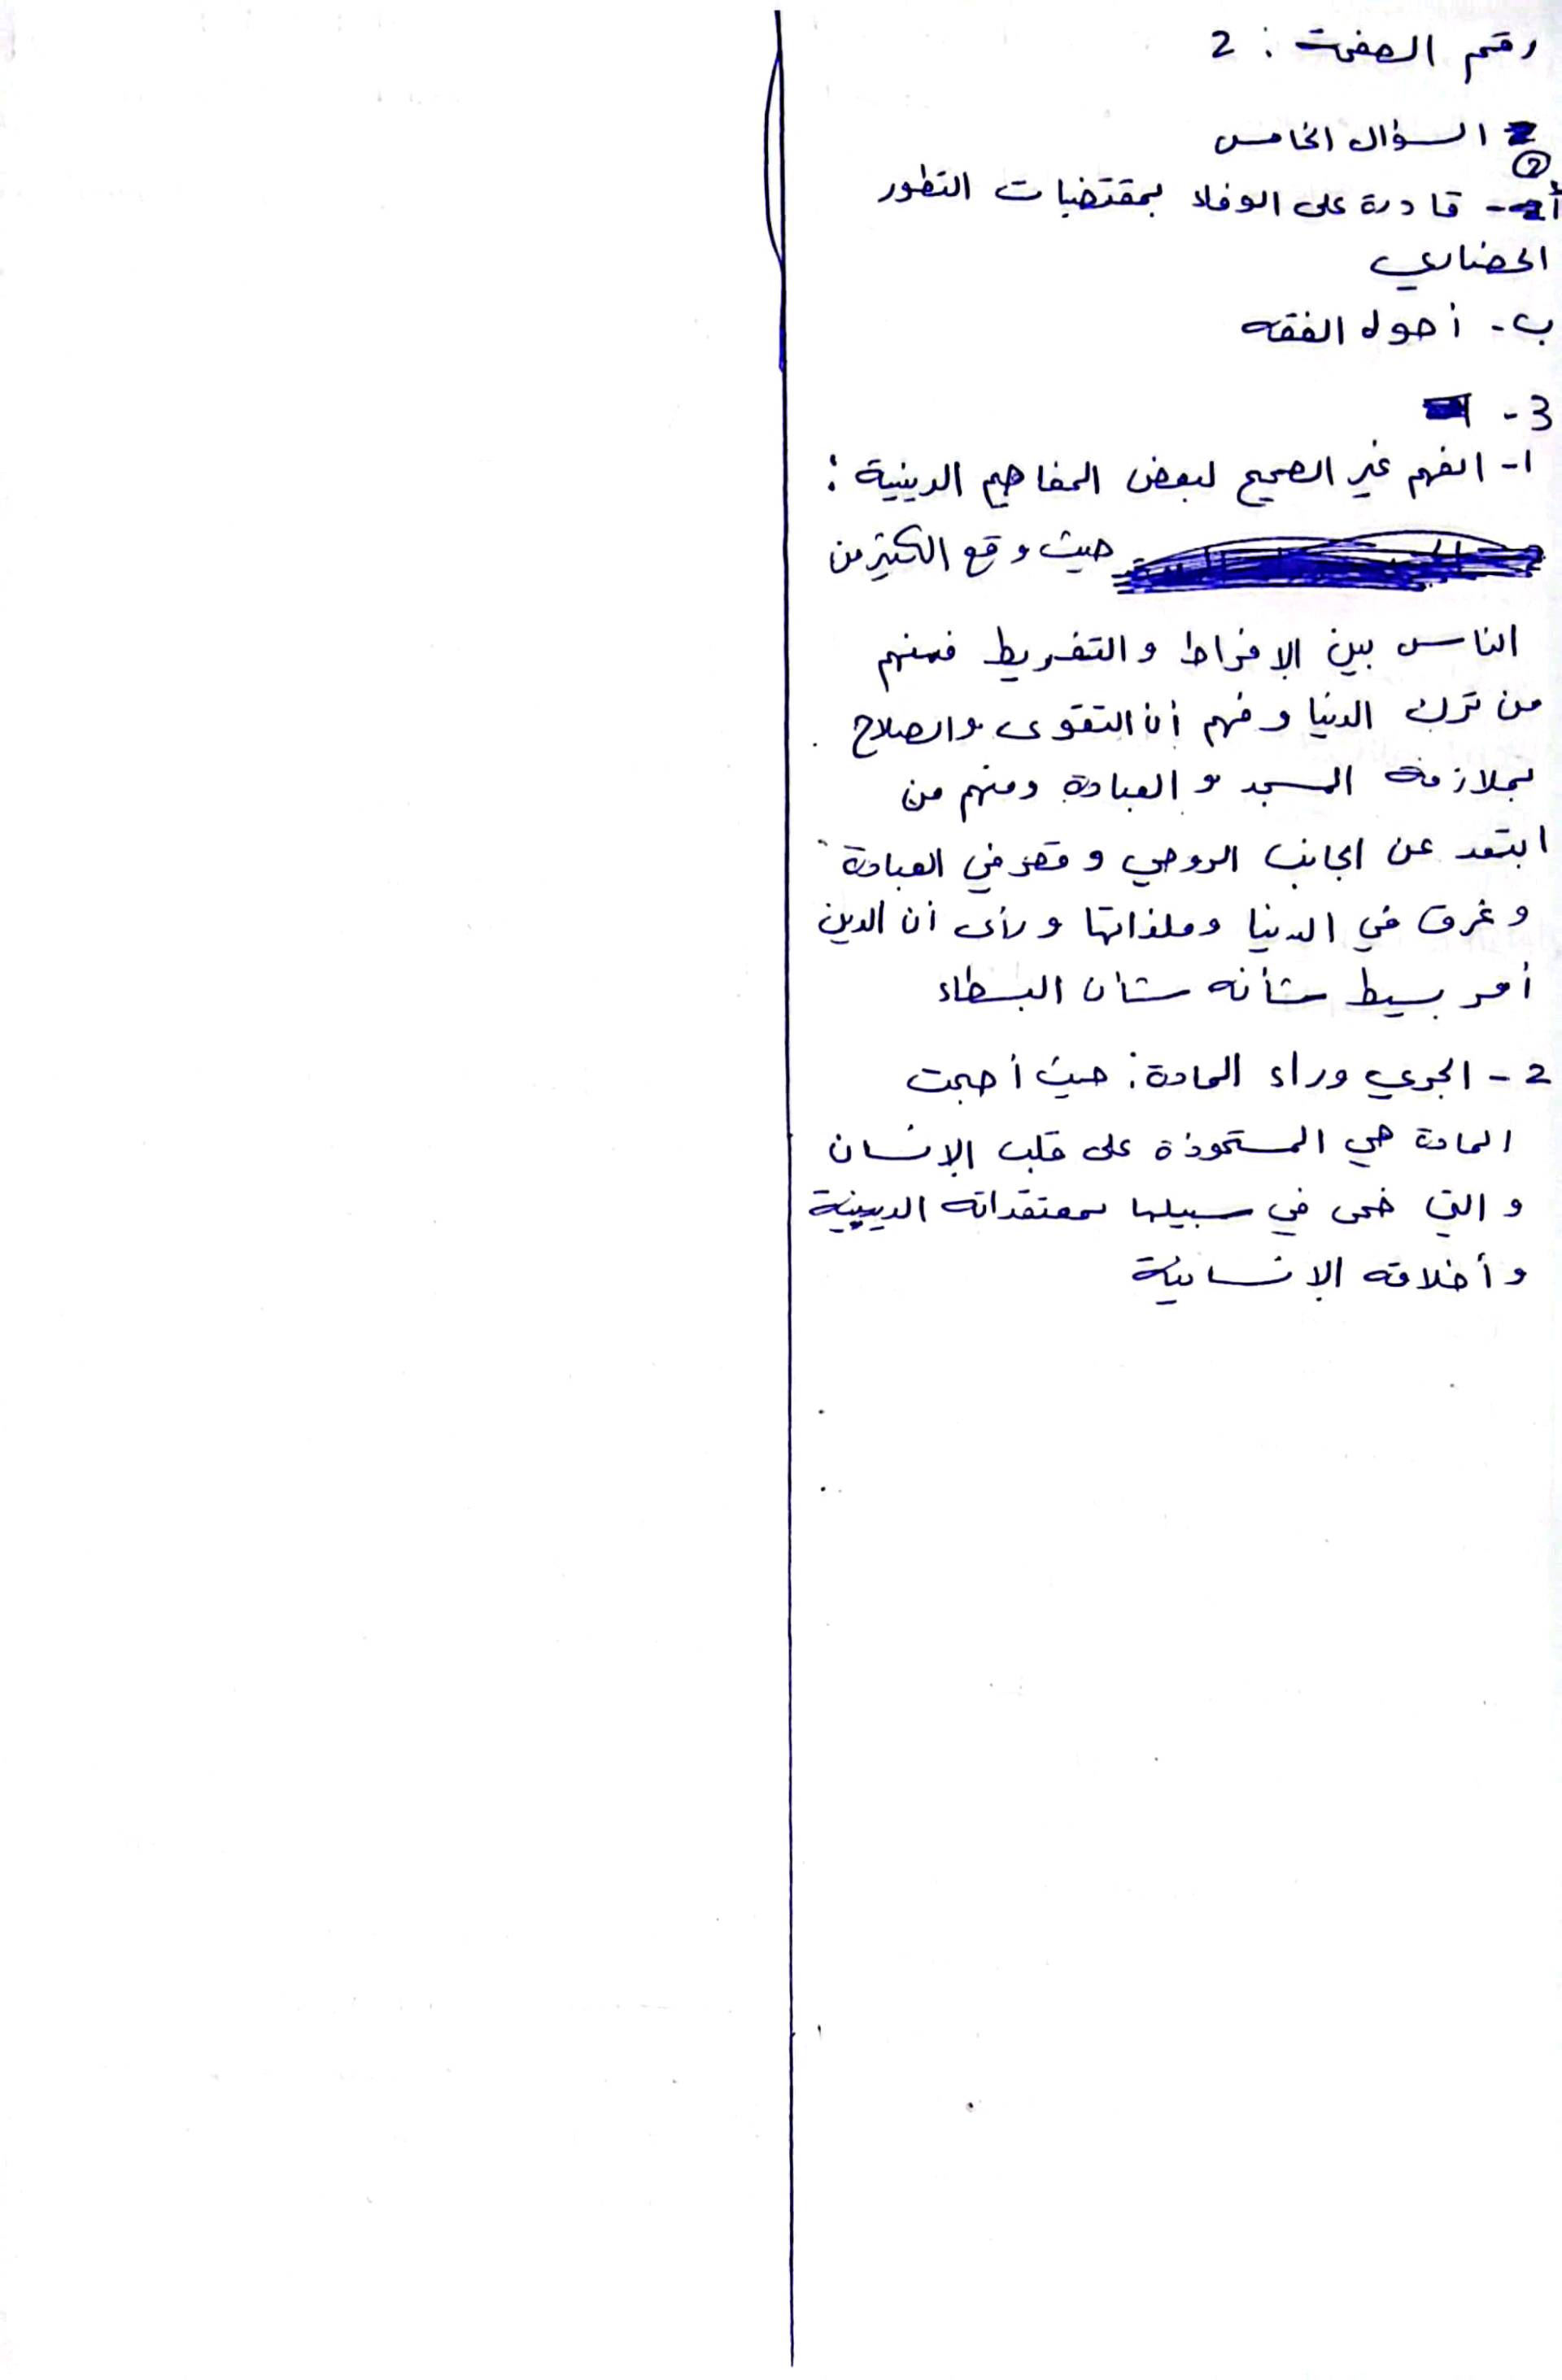 رقم الصفحة : 2
السؤال الخامس
②
أ - قادرة على الوفاء بمقتضيات التطور
الحضاري
ب - أصول الفقه
3 -
1 - الفهم غير الصحيح لبعض المفاهيم الدينية :
حيث وقع الكثير من
الناس بين الإفراط و التفريط فمنهم
من ترك الدنيا و فهم أن التقوى والصلاح
بملازمة المسجد و العبادة ومنهم من
ابتعد عن الجانب الروحي و قصر في العبادة
و غرق في الدنيا وملذاتها و رأى أن الدين
أمر بسيط شأنه شأن البسطاء
2 - الجري وراء المادة : حيث أصبحت
المادة هي المستحوذة على قلب الإنسان
و التي ضحى في سبيلها بمعتقداته الدينية
و أخلاقه الإنسانية